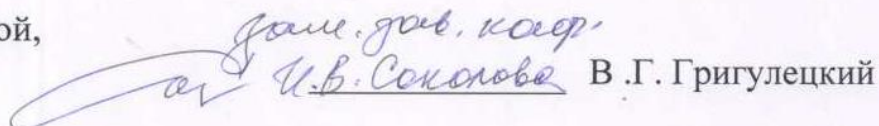 ой, зам. зав. каф.
И.В. Соколова В .Г. Григулецкий